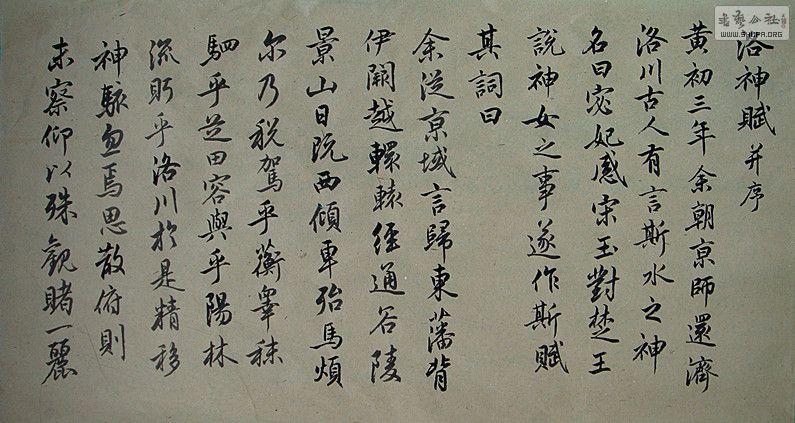 洛神賦并序
黃初三年余朝京師還濟
洛川古人有言斯水之神
名曰宓妃感宋玉對楚王
說神女之事遂作斯賦
其詞曰
余從京域言歸東藩背
伊闕越轘轅經通谷陵
景山日既西傾車殆馬煩
尔乃稅駕乎蘅皋秣
駟乎芝田容與乎陽林
流眄乎洛川於是精移
神駭忽焉思散俯則
未察仰以殊觀睹一麗
書藝公社
www.SYGPA.ORG